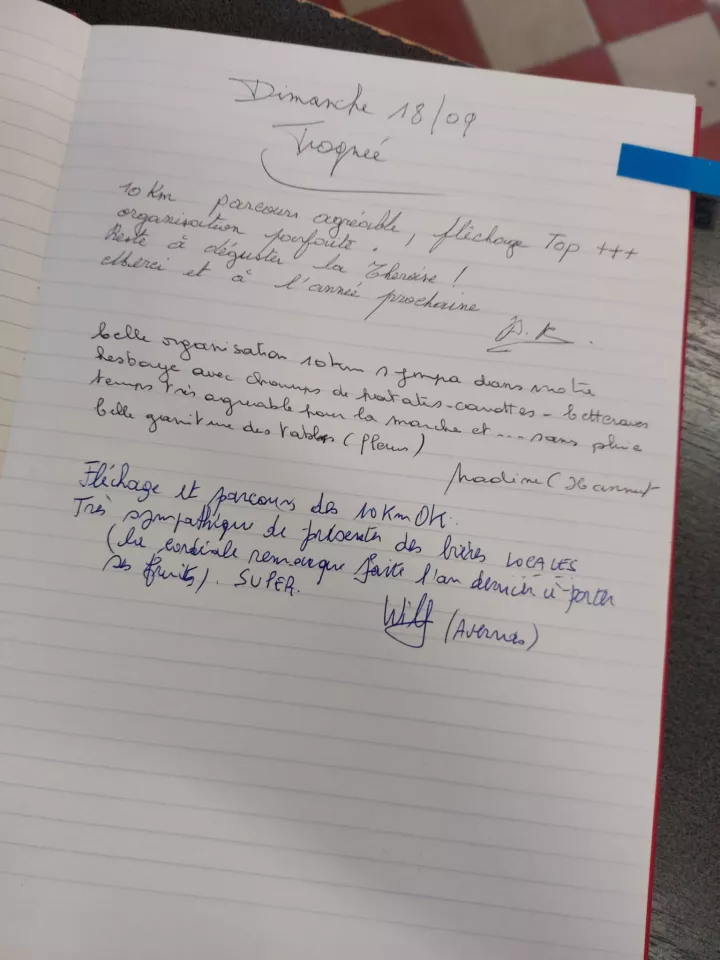 Dimanche 18/09
Trognée
10 Km parcours agréable, fléchage Top +++
organisation parfaite.
Reste à déguster la Theroise !
Merci et à l'année prochaine
belle organisation 10 km sympa dans notre
hesbaye avec champs de patates-carottes-betteraves
temps très agréable pour la marche et ... sans pluie
belle garniture des tables (fleurs)
Nadine (Hannut
Fléchage et parcours des 10 Km OK.
Très sympathique de présenter des bières LOCALES
(la cordiale remarque faite l'an dernier a porté
ses fruits). SUPER.
Wilf (Avernas)